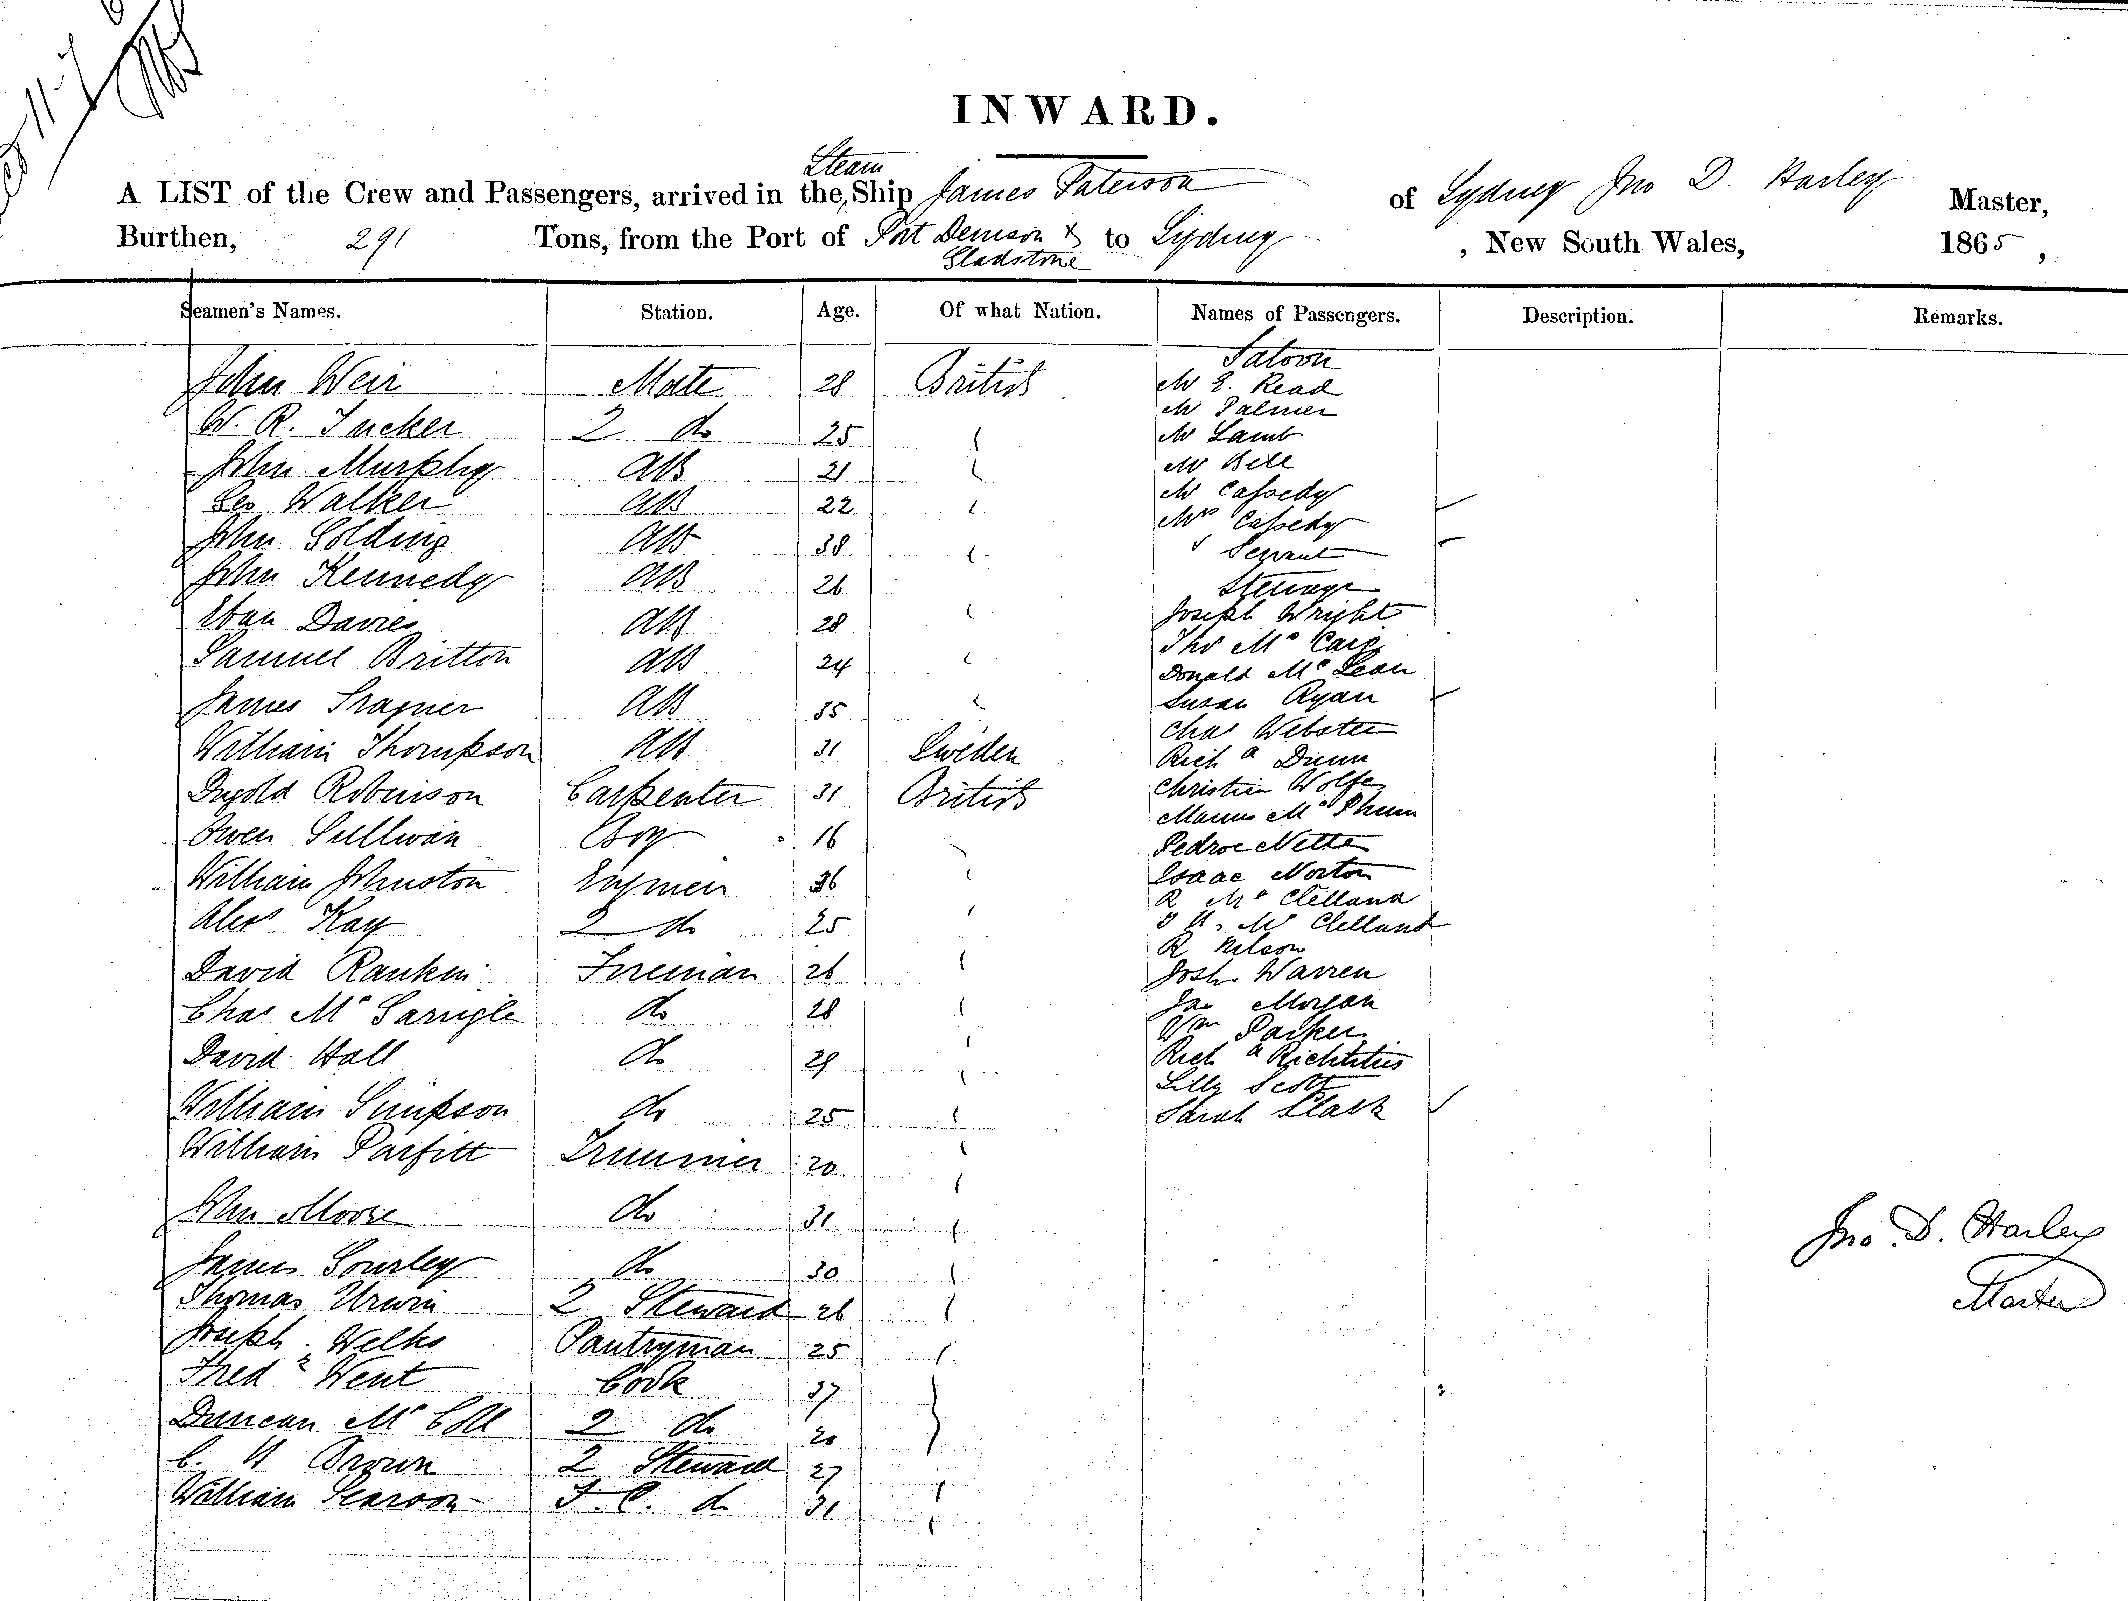 INWARD.
A LIST of the Crew and Passengers, arrived in the Steam Ship James Paterson of Sydney Jno D. Harley Master,
Burthen, 291 Tons, from the Port of Port Denison & Gladstone to Sydney, New South Wales, 1865,
Seamen's Names. Station. Age. Of what Nation. Names of Passengers. Description. Remarks.
John Weir Mate 28 British
W. R. Tucker 2 do 25
John Murphy AB 21
Geo Walker AB 22
John Golding AB 38
John Kennedy AB 26
Evan Davies AB 28
Samuel Britton AB 24
James AB 35
William Thompson AB 31 Sweden
Robinson Carpenter 31 British
Owen Sullivan Boy 16
William Johnston Engineer 36
Alex Kay 2 do 25
David Rankin Fireman 26
Chas McGarrigle do 28
David Hall do 29
William Simpson do 25
William Parfitt Trimmer 20
John Moore do 31
James Gourley do 30
Thomas Urwin 2 Steward 26
Joseph Welks Pantryman 25
Fredk Went Cook 37
Duncan McColl 2 do 20
C. H Brown 2 Steward 27
William F. C. do 31
Saloon
Mr E. Read
Mr Palmer
Mr Lamb
Mr Bell
Mr Cassedy
Mrs Cassedy
& Servant
Steerage
Joseph Wright
Thos McCaig
Donald McLean
Susan Ryan
Chas Webster
Richd Dunn
Christian Wolfe
Mc
Pedroe Nette
Isaac Norton
R McClelland
McClelland
R Nelson
Josh Warren
Jno Morgan
Wm Parker
Richd
Lilly Scott
Sarah Slack
Jno. D. Harley
Master